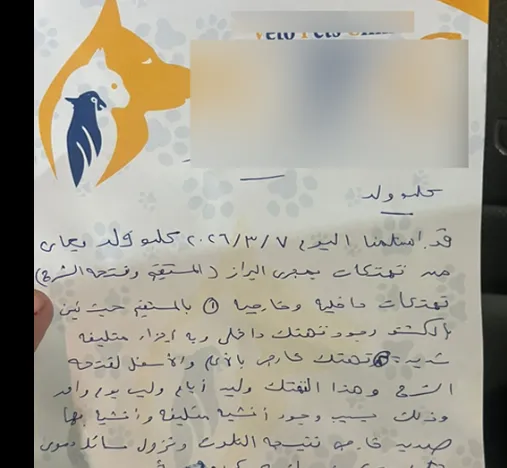 Veto Pets Clinic
كلب ولد
قد استلمنا اليوم ٢٠٢٦/٣/٧ كلب ولد يعاني
من تهتكات بمجرى البراز (المستقيم وفتحة الشرج)
تهتكات داخلية وخارجية ① بالمستقيم حيث تبين
بالكشف وجود تهتك داخلي وبه أجزاء متليفة
شديدة ② تهتك خارجي بالأعلى والأسفل لفتحة
الشرج وهذا التهتك وليد أيام وليس يوم واحد
وذلك بسبب وجود أنسجة متليفة وأنسجة بها
صديد خارجه نتيجة التلوث ونزول سائل دموي